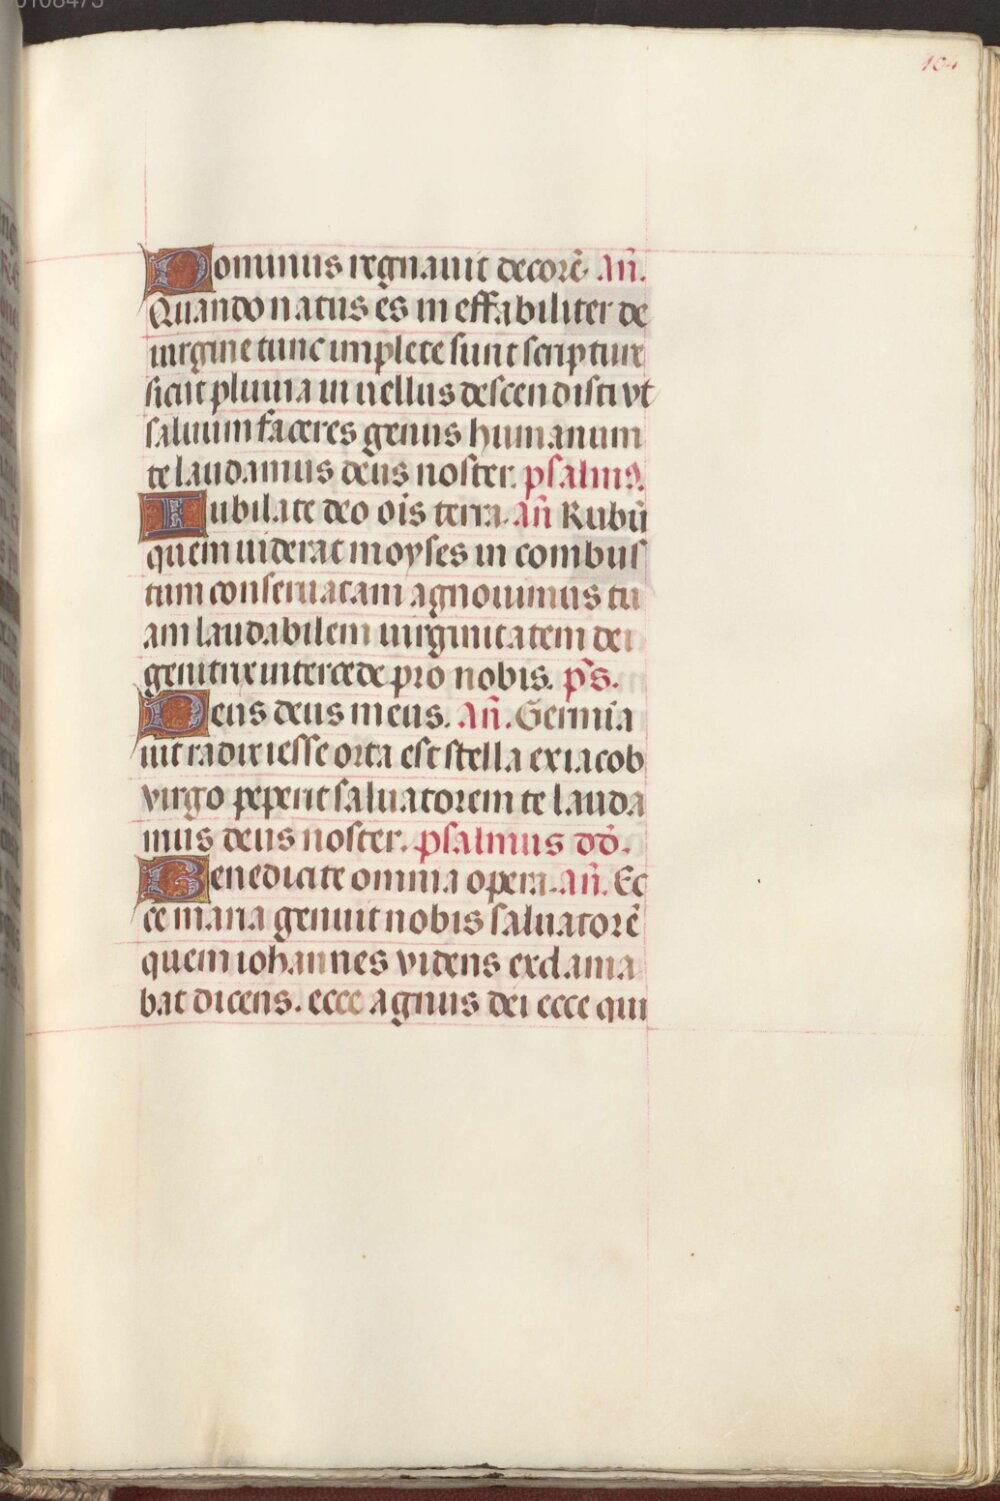 104
Dominus regnauit decorē. añ.
Quando natus es ineffabiliter de
uirgine tunc implete sunt scripture
sicut pluuia in uellus descendisti vt
saluum faceres genus humanum
te laudamus deus noster. psalmꝰ.
Iubilate deo oīs terra. añ Rubū
quem uiderat moyses in combus
tum conseruatam agnouimus tu
am laudabilem uirginitatem dei
genitrix intercede pro nobis. ps̄.
Deus deus meus. añ. Germia
uit radix iesse orta est stella ex iacob
virgo peperit saluatorem te lauda
mus deus noster. psalmus dd̄.
Benedicite omnia opera. añ. Ec
ce maria genuit nobis saluatorē
quem iohannes videns exclama
bat dicens. ecce agnus dei ecce qui